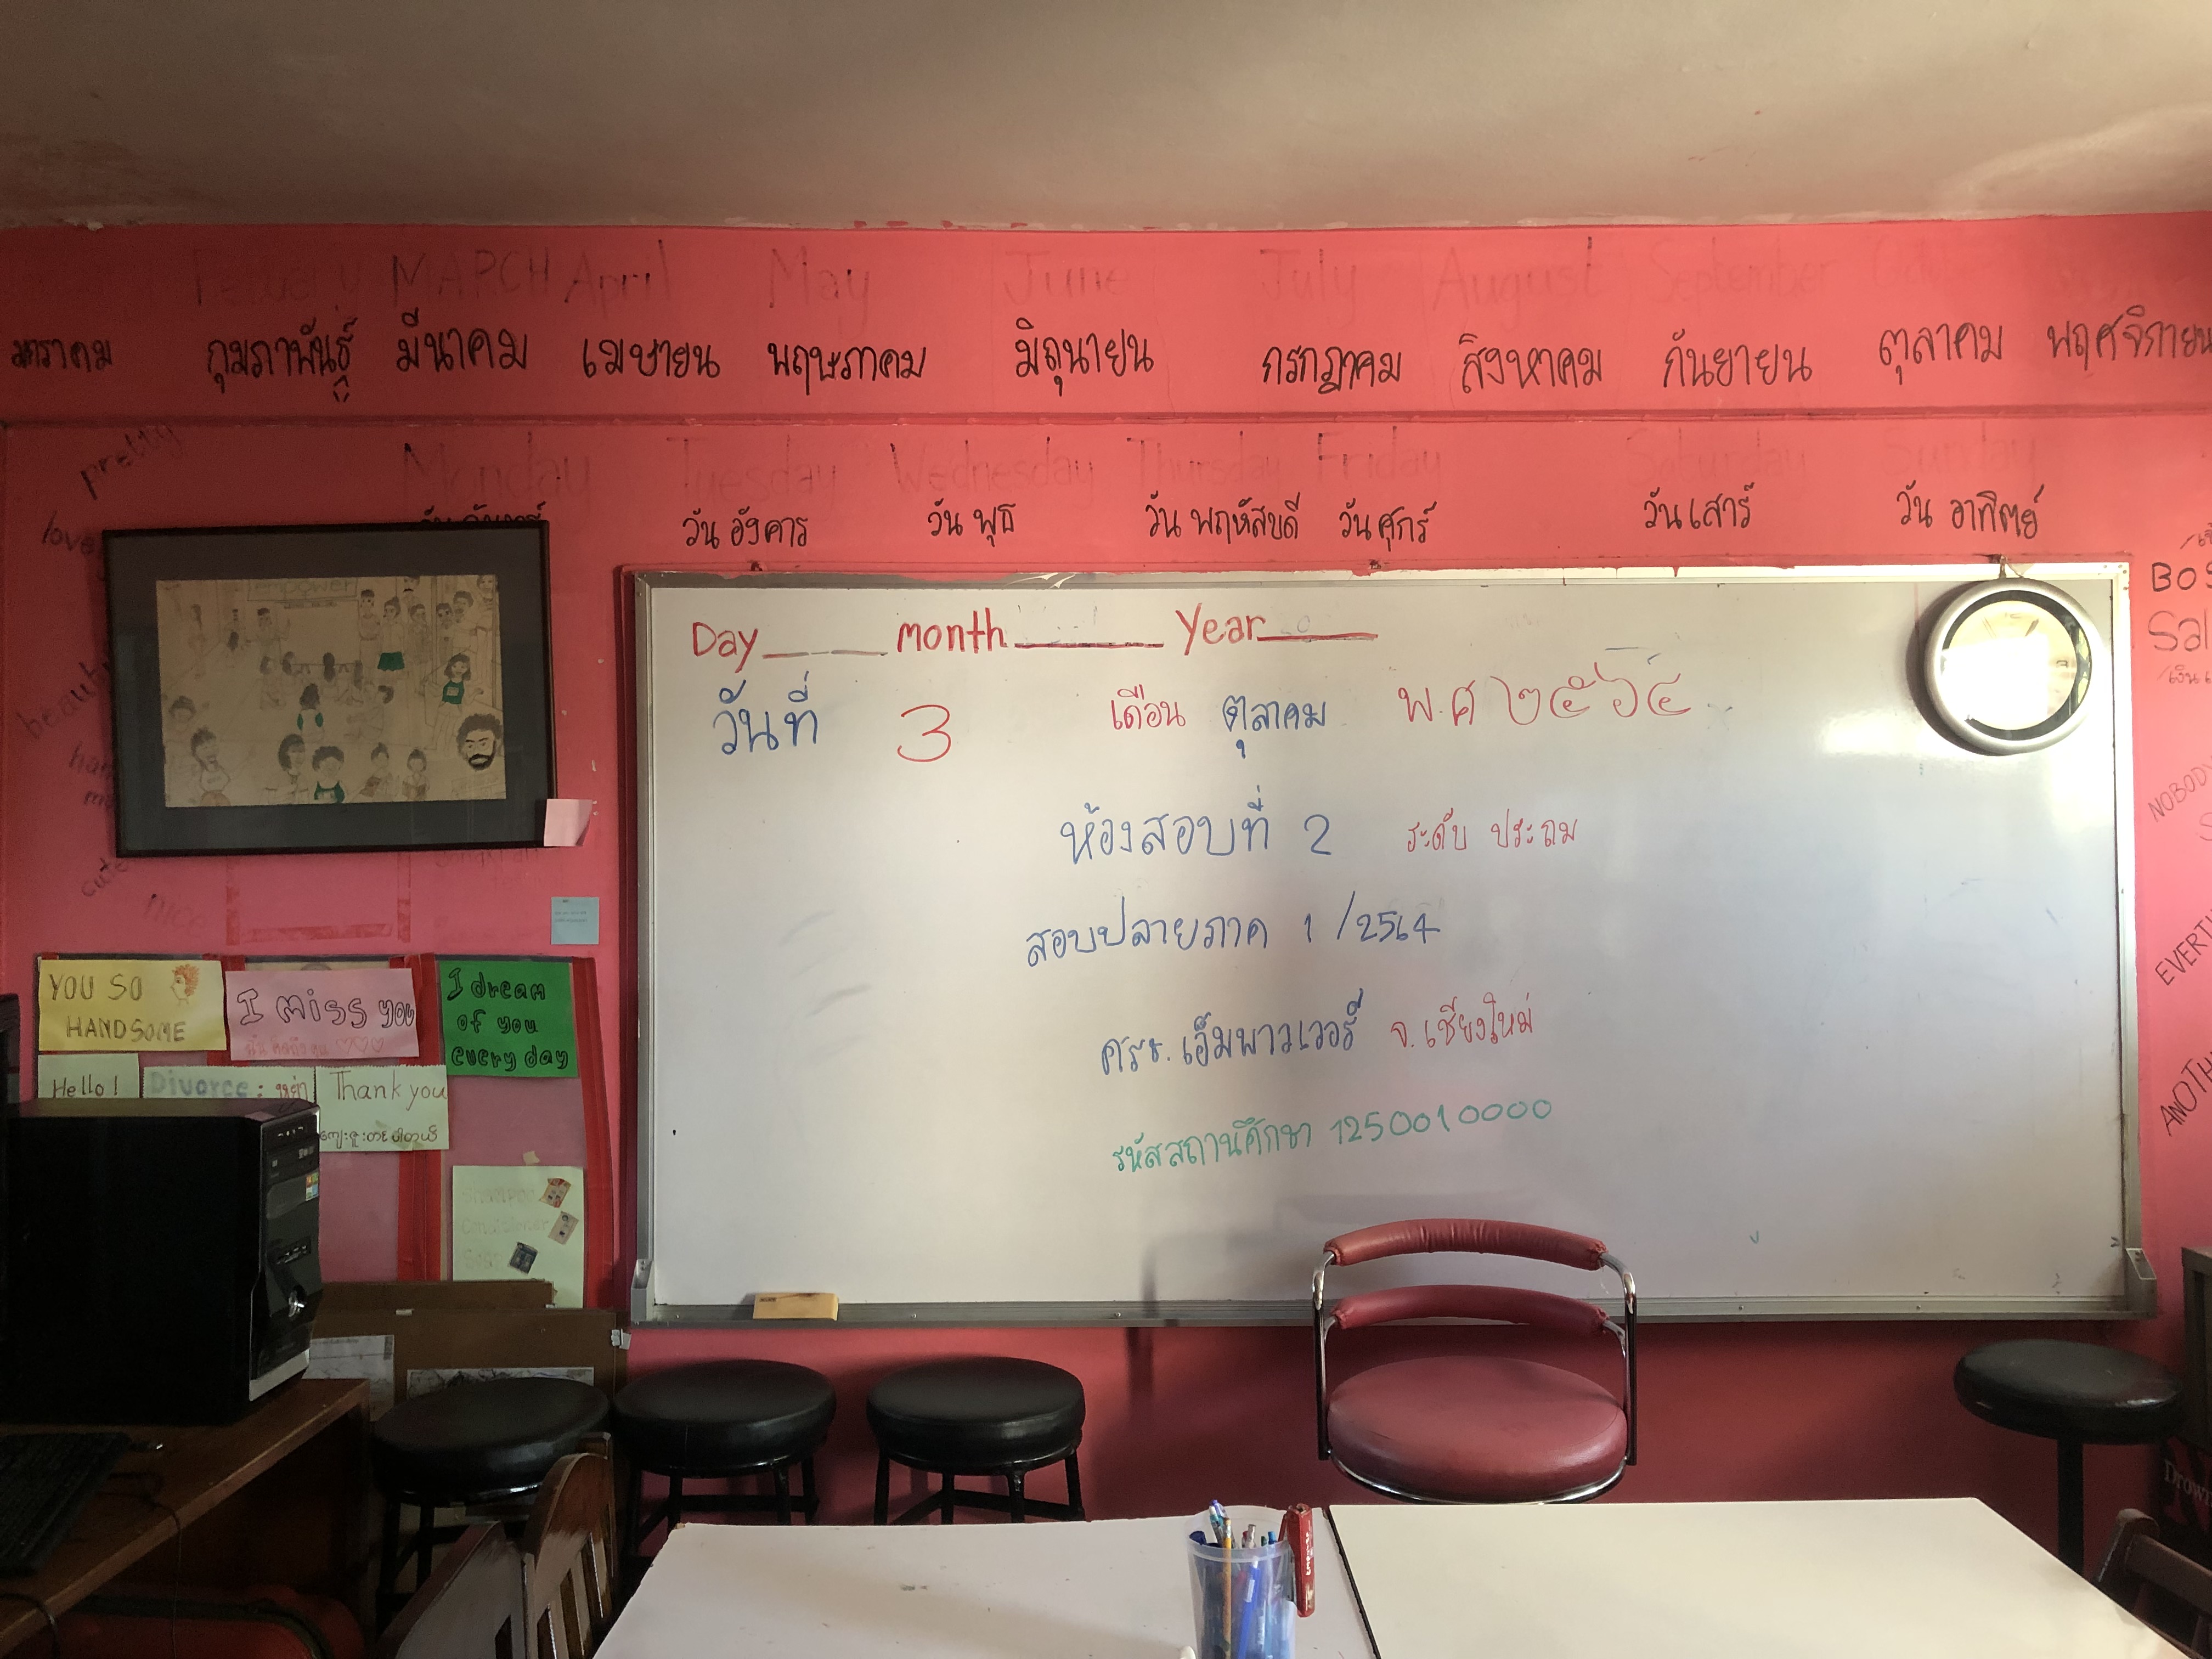 MARCH April May June July August September
มกราคม กุมภาพันธ์ มีนาคม เมษายน พฤษภาคม มิถุนายน กรกฎาคม สิงหาคม กันยายน ตุลาคม พฤศจิกายน
Monday Tuesday Wednesday Thursday Friday Saturday Sunday
วัน อังคาร วัน พุธ วัน พฤหัสบดี วันศุกร์ วันเสาร์ วัน อาทิตย์
pretty
love
cute
nice
empower
Day month Year
วันที่ 3 เดือน ตุลาคม พ.ศ ๒๕๖๔
ห้องสอบที่ 2 ระดับ ประถม
สอบปลายภาค 1/2564
ศรช. เอ็มพาวเวอร์ จ. เชียงใหม่
รหัสสถานศึกษา 1250010000
YOU SO
HANDSOME
I miss you
ฉันคิดถึงคุณ
I dream
of you
every day
Hello!
Divorce: หย่า
Thank you
ကျေးဇူးတင်ပါတယ်
Shampoo
Conditioner
Soap
NOBODY